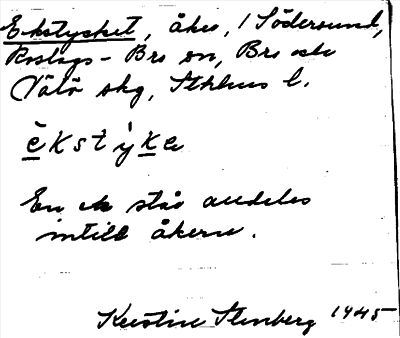 Ekstycket, åker, 1 Södersund,
Roslags-Bro sn, Bro och
Vätö skg, Sthlms l.
èkstỳke
En ek står alldeles
intill åkern.
Kerstin Stenberg 1945